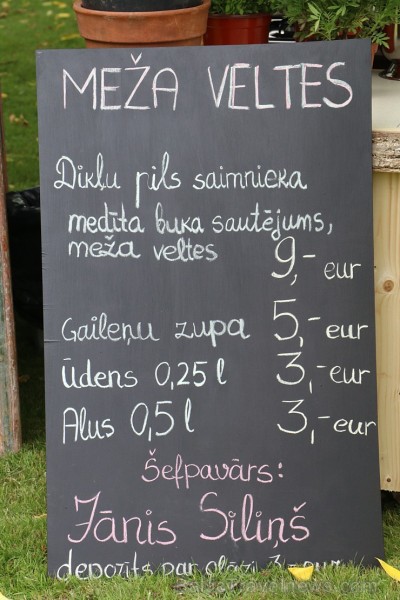 MEŽA VELTES
Dikļu pils saimnieka
medīta buka sautējums,
meža veltes
9,- eur
Gaileņu zupa 5,- eur
Ūdens 0,25 l 3,- eur
Alus 0,5 l 3,- eur
Šefpavārs:
Jānis Siliņš
depozīts par glāzi 3,- eur